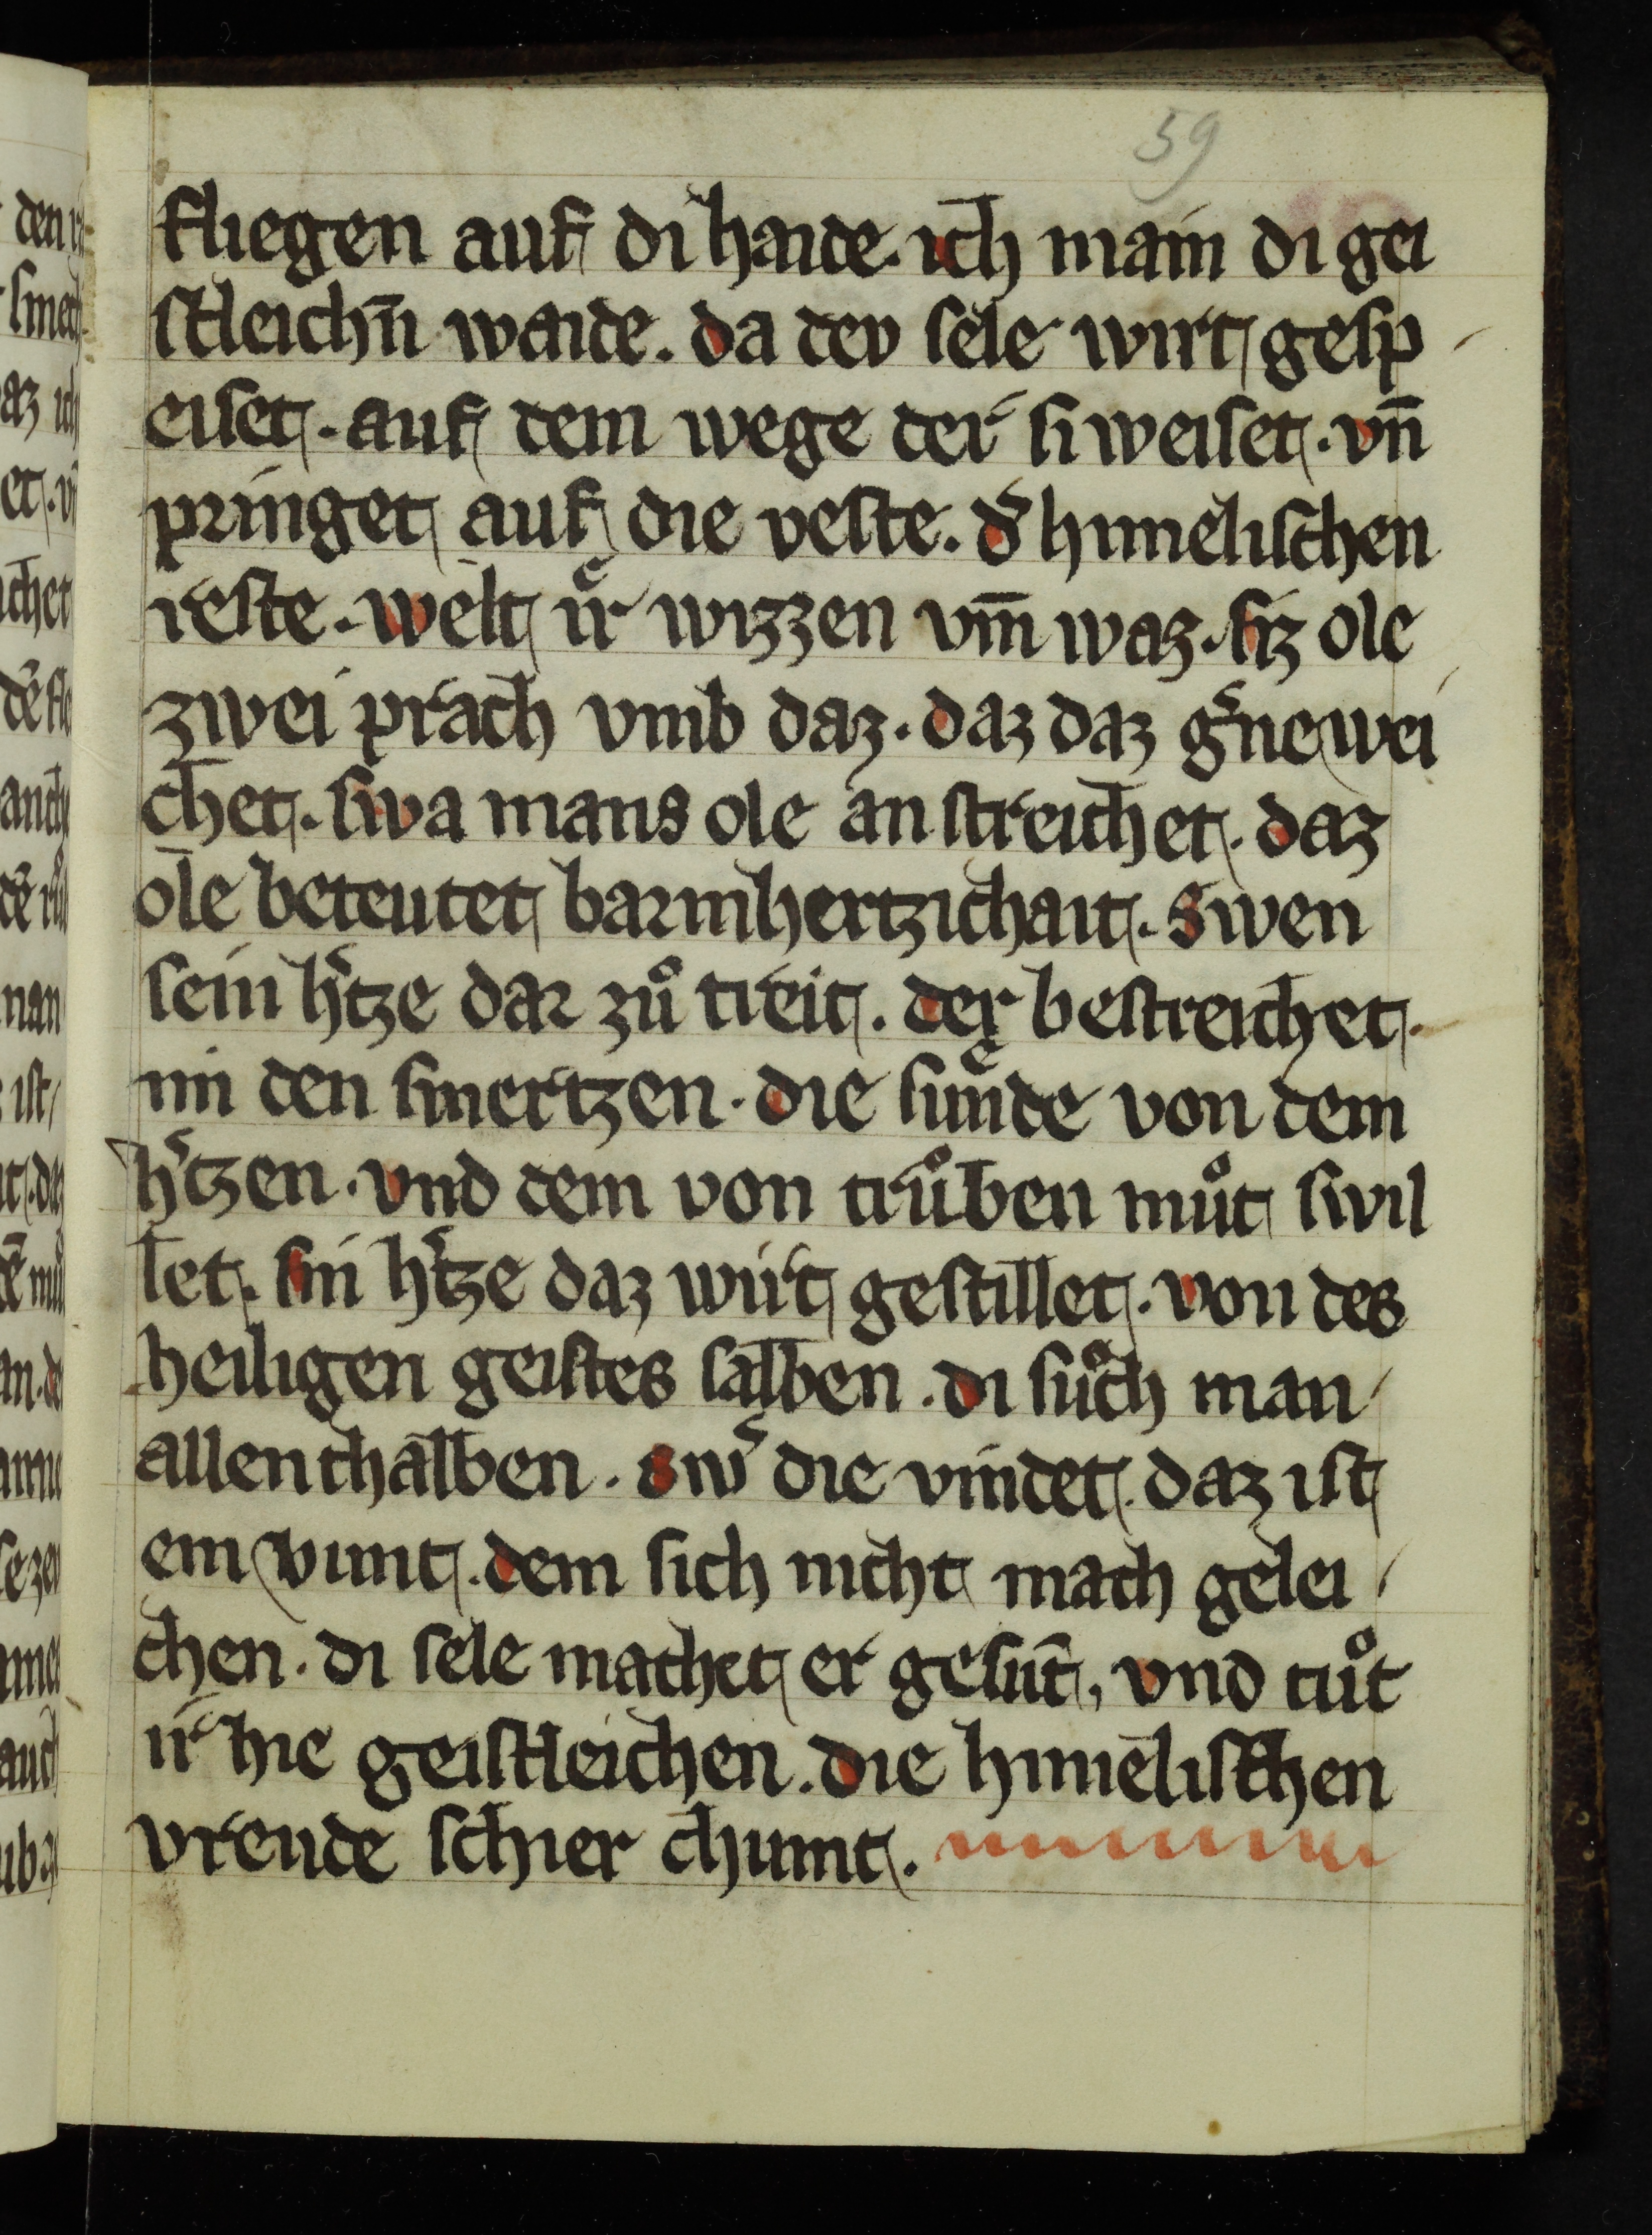 59
fliegen auf di haide. ich main di gei
stleichn̄ waide. da dev sele wirt gesp
eiset. auf dem wege der si weiset. vn̄
pringet auf die veste. d͛ himelischen
reste. welt iͤr wizzen vm̄ waz. siz ole
zwei prach vmb daz. daz daz g͛ne wei
chet. swa mans ole an streichet. daz
ole beteutet barmhertzichait. Swen
sein h͛tze dar zuͦ treit. der bestreichet.
im den smertzen. die suͤnde von dem
h͛tzen. vnd dem von truͦben muͦt swil
let. sin h͛tze daz wirt gestillet. von des
heiligen geistes salben. di suͦch man
allenthalben. Sw͛ die vindet. daz ist
ein vunt. dem sich nicht mach gelei
chen. di sele machet er gesūt, vnd tuͦt
ir hie geistleichen. die himelischen
vreude schier chumt.